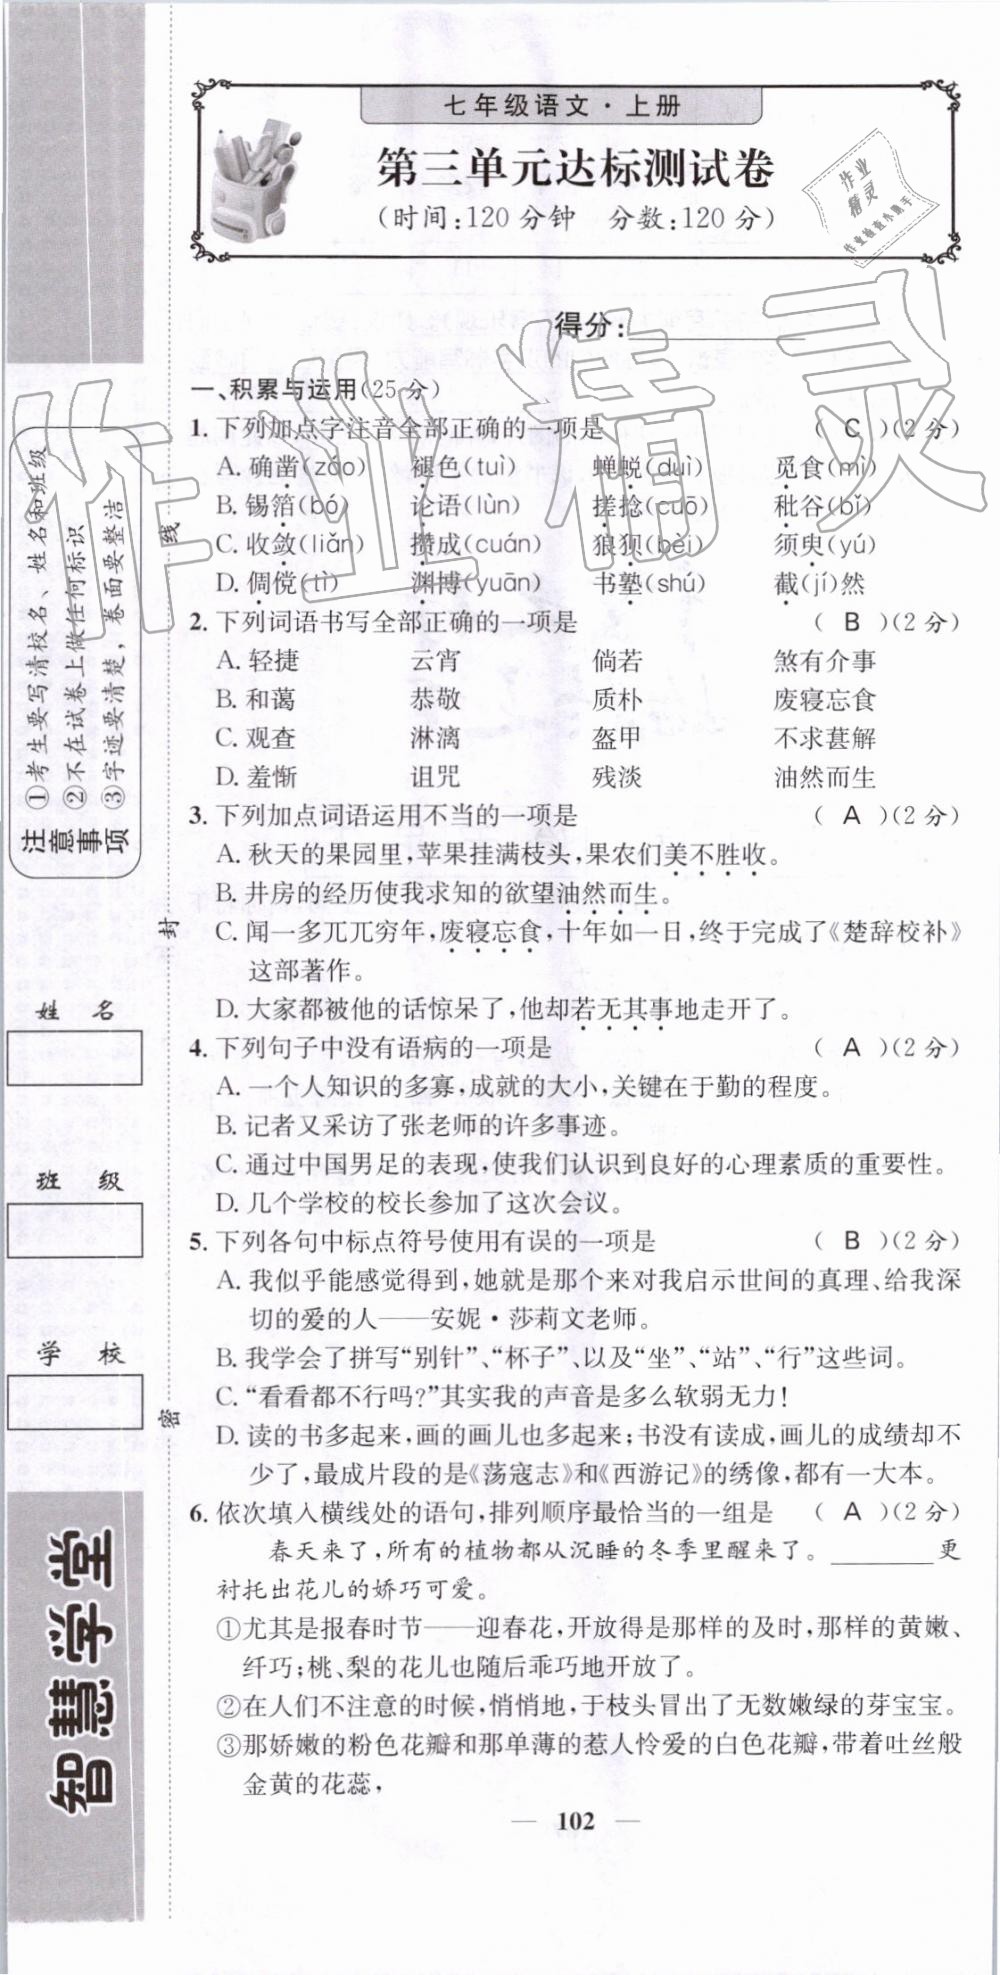 七年级语文·上册
第三单元达标测试卷
(时间:120分钟 分数:120分)
作业
精灵
作业检查小助手
得分:
一、积累与运用(25分)
1. 下列加点字注音全部正确的一项是 ( C )(2分)
A. 确凿(záo) 褪色(tuì) 蝉蜕(duì) 觅食(mì)
B. 锡箔(bó) 论语(lùn) 搓捻(cuō) 秕谷(bǐ)
C. 收敛(liǎn) 攒成(cuán) 狼狈(bèi) 须臾(yú)
D. 倜傥(tì) 渊博(yuān) 书塾(shú) 截(jí)然
2. 下列词语书写全部正确的一项是 ( B )(2分)
A. 轻捷 云宵 倘若 煞有介事
B. 和蔼 恭敬 质朴 废寝忘食
C. 观查 淋漓 盔甲 不求甚解
D. 羞惭 诅咒 残淡 油然而生
3. 下列加点词语运用不当的一项是 ( A )(2分)
A. 秋天的果园里,苹果挂满枝头,果农们美不胜收。
B. 井房的经历使我求知的欲望油然而生。
C. 闻一多兀兀穷年,废寝忘食,十年如一日,终于完成了《楚辞校补》
这部著作。
D. 大家都被他的话惊呆了,他却若无其事地走开了。
4. 下列句子中没有语病的一项是 ( A )(2分)
A. 一个人知识的多寡,成就的大小,关键在于勤的程度。
B. 记者又采访了张老师的许多事迹。
C. 通过中国男足的表现,使我们认识到良好的心理素质的重要性。
D. 几个学校的校长参加了这次会议。
5. 下列各句中标点符号使用有误的一项是 ( B )(2分)
A. 我似乎能感觉得到,她就是那个来对我启示世间的真理、给我深
切的爱的人——安妮·莎莉文老师。
B. 我学会了拼写“别针”、“杯子”、以及“坐”、“站”、“行”这些词。
C. “看看都不行吗?”其实我的声音是多么软弱无力!
D. 读的书多起来,画的画儿也多起来;书没有读成,画儿的成绩却不
少了,最成片段的是《荡寇志》和《西游记》的绣像,都有一大本。
6. 依次填入横线处的语句,排列顺序最恰当的一组是 ( A )(2分)
春天来了,所有的植物都从沉睡的冬季里醒来了。________更
衬托出花儿的娇巧可爱。
①尤其是报春时节——迎春花,开放得是那样的及时,那样的黄嫩、
纤巧;桃、梨的花儿也随后乖巧地开放了。
②在人们不注意的时候,悄悄地,于枝头冒出了无数嫩绿的芽宝宝。
③那娇嫩的粉色花瓣和那单薄的惹人怜爱的白色花瓣,带着吐丝般
金黄的花蕊,
— 102 —
注意事项
①考生要写清校名、姓名和班级
②不在试卷上做任何标识
③字迹要清楚,卷面要整洁
姓 名
班 级
学 校
线
封
密
智慧学堂
作业精灵